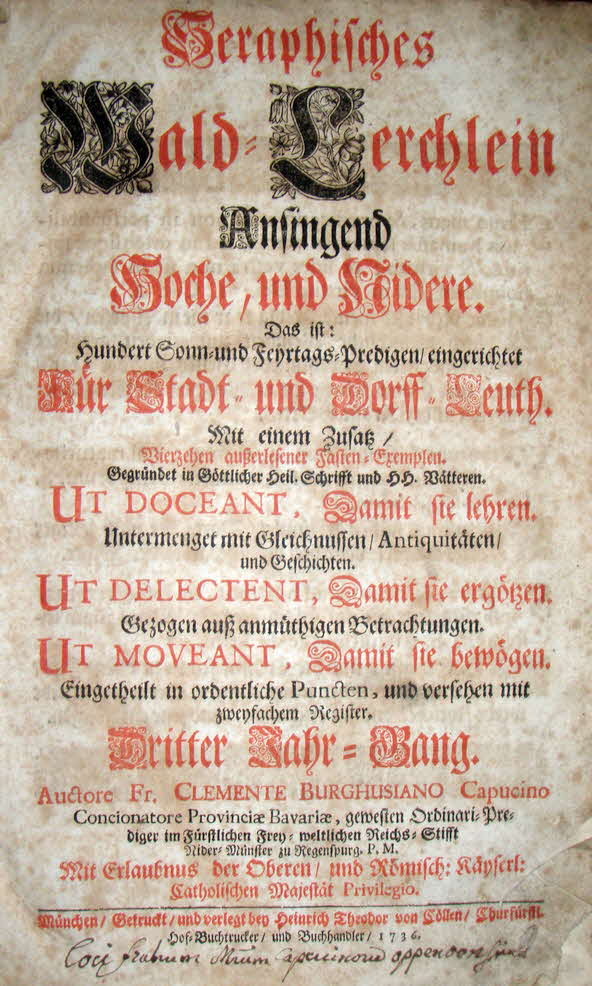 Seraphisches
Wald-Lerchlein
Ansingend
Hoche, und Nidere.
Das ist:
Hundert Sonn-und Feyrtags-Predigen/ eingerichtet
Für Stadt- und Dorff-Leuth.
Mit einem Zusatz/
Vierzehen außerlesener Fasten-Exemplen.
Gegründet in Göttlicher Heil. Schrifft und HH. Vätteren.
UT DOCEANT, Damit sie lehren.
Untermenget mit Gleichnussen/ Antiquitäten/
und Geschichten.
UT DELECTENT, Damit sie ergötzen.
Gezogen auß anmüthigen Betrachtungen.
UT MOVEANT, Damit sie bewögen.
Eingetheilt in ordentliche Puncten, und versehen mit
zweyfachem Register.
Dritter Jahr-Gang.
Auctore Fr. CLEMENTE BURGHUSIANO Capucino
Concionatore Provinciæ Bavariæ, gewesten Ordinari-Pre-
diger im Fürstlichen Frey-weltlichen Reichs-Stifft
Nider-Münster zu Regenspurg. P. M.
Mit Erlaubnus der Oberen/ und Römisch: Käyserl:
Catholischen Majestät Privilegio.
München/ Getruckt/ und verlegt bey Heinrich Theodor von Cöllen/ Churfürstl.
Hof-Buchtrucker/ und Buchhandler/ 1736.
Loci fratrum